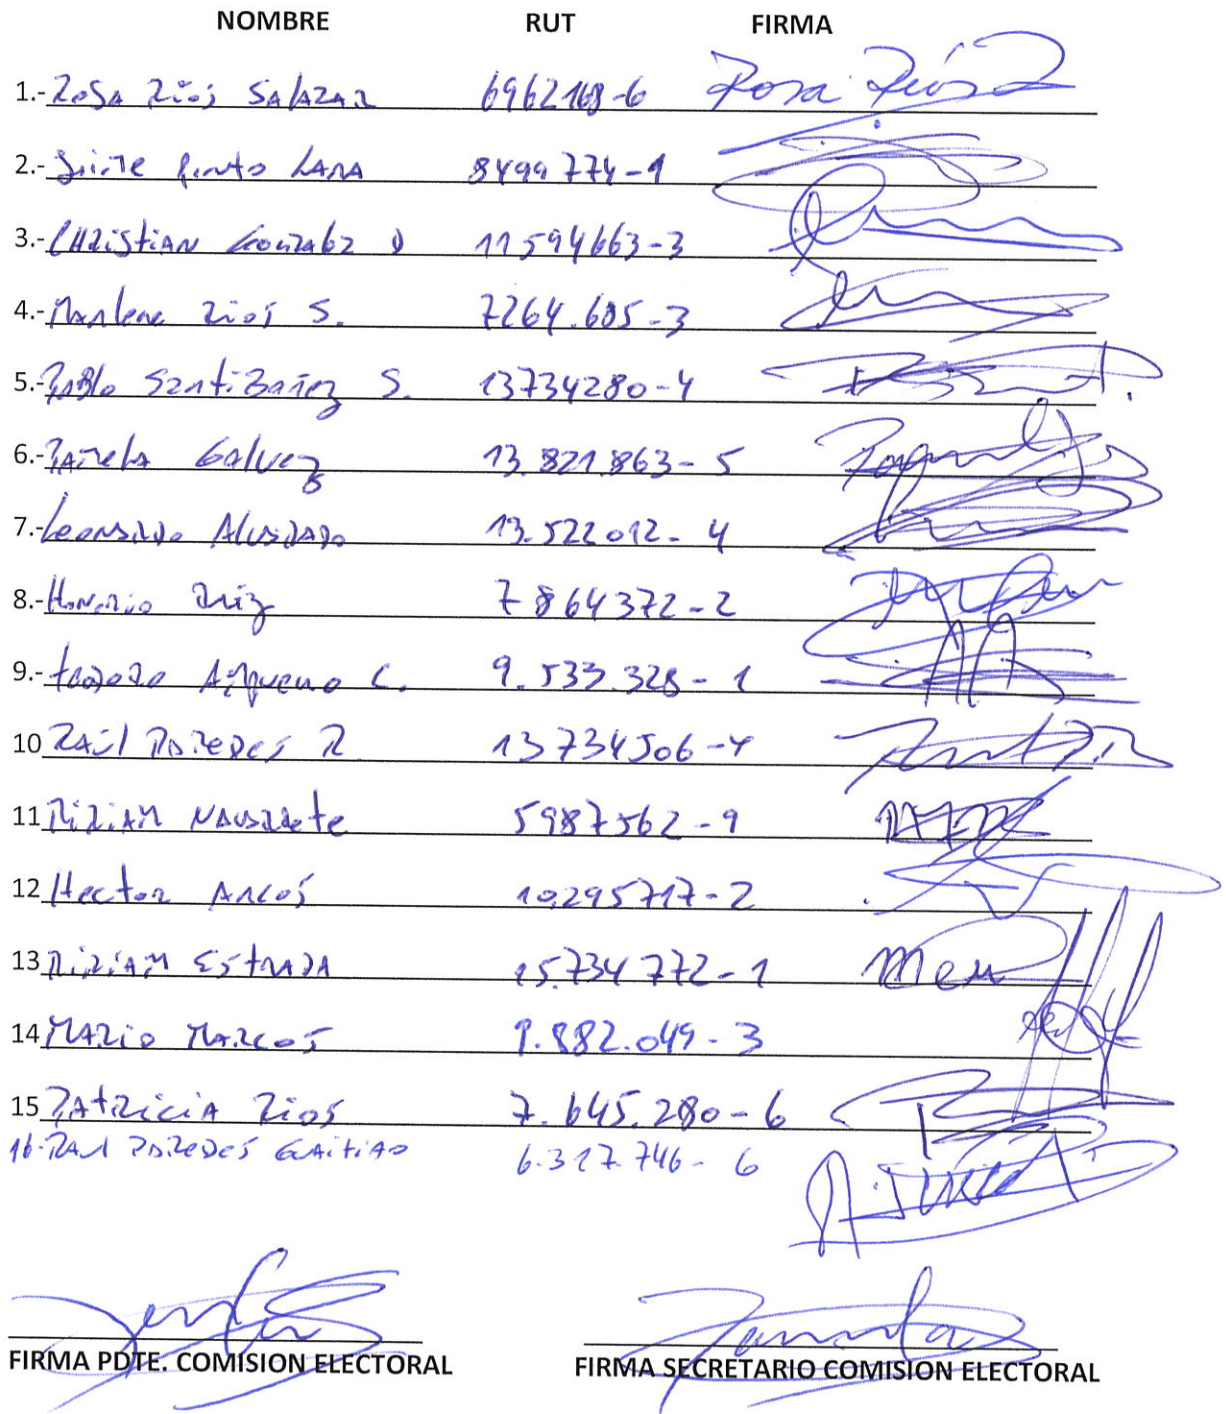 NOMBRE RUT FIRMA
1.- Rosa Ríos Salazar 6962168-6 Rosa Ríos
2.- Pinto Lara 8499774-1
3.- Christian Gonzalez D 11594663-3
4.- Marlene Rios S. 7264.685-3
5.- Pablo Santibañez S. 13734280-4
6.- Pamela Galvez 13.821.863-5
7.- Leonardo Alvarado 13.522012-4
8.- Honorio Ruiz 7864372-2
9.- C. 9.533.328-1
10 Raúl Paredes R 13734506-4
11 Miriam Navarrete 5987562-9
12 Hector Arcos 10.295717-2
13 Miriam Estrada 15.734772-1
14 Mario Marcos 9.882.049-3
15 Patricia Rios 7.645.280-6
16.- Raul Paredes 6.317.746-6
FIRMA PDTE. COMISION ELECTORAL FIRMA SECRETARIO COMISION ELECTORAL